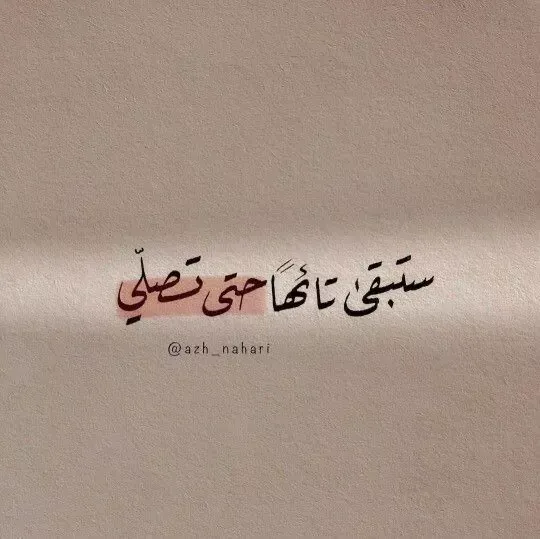 ستبقىٰ تائهًا حتى تصلّي
@azh_nahari